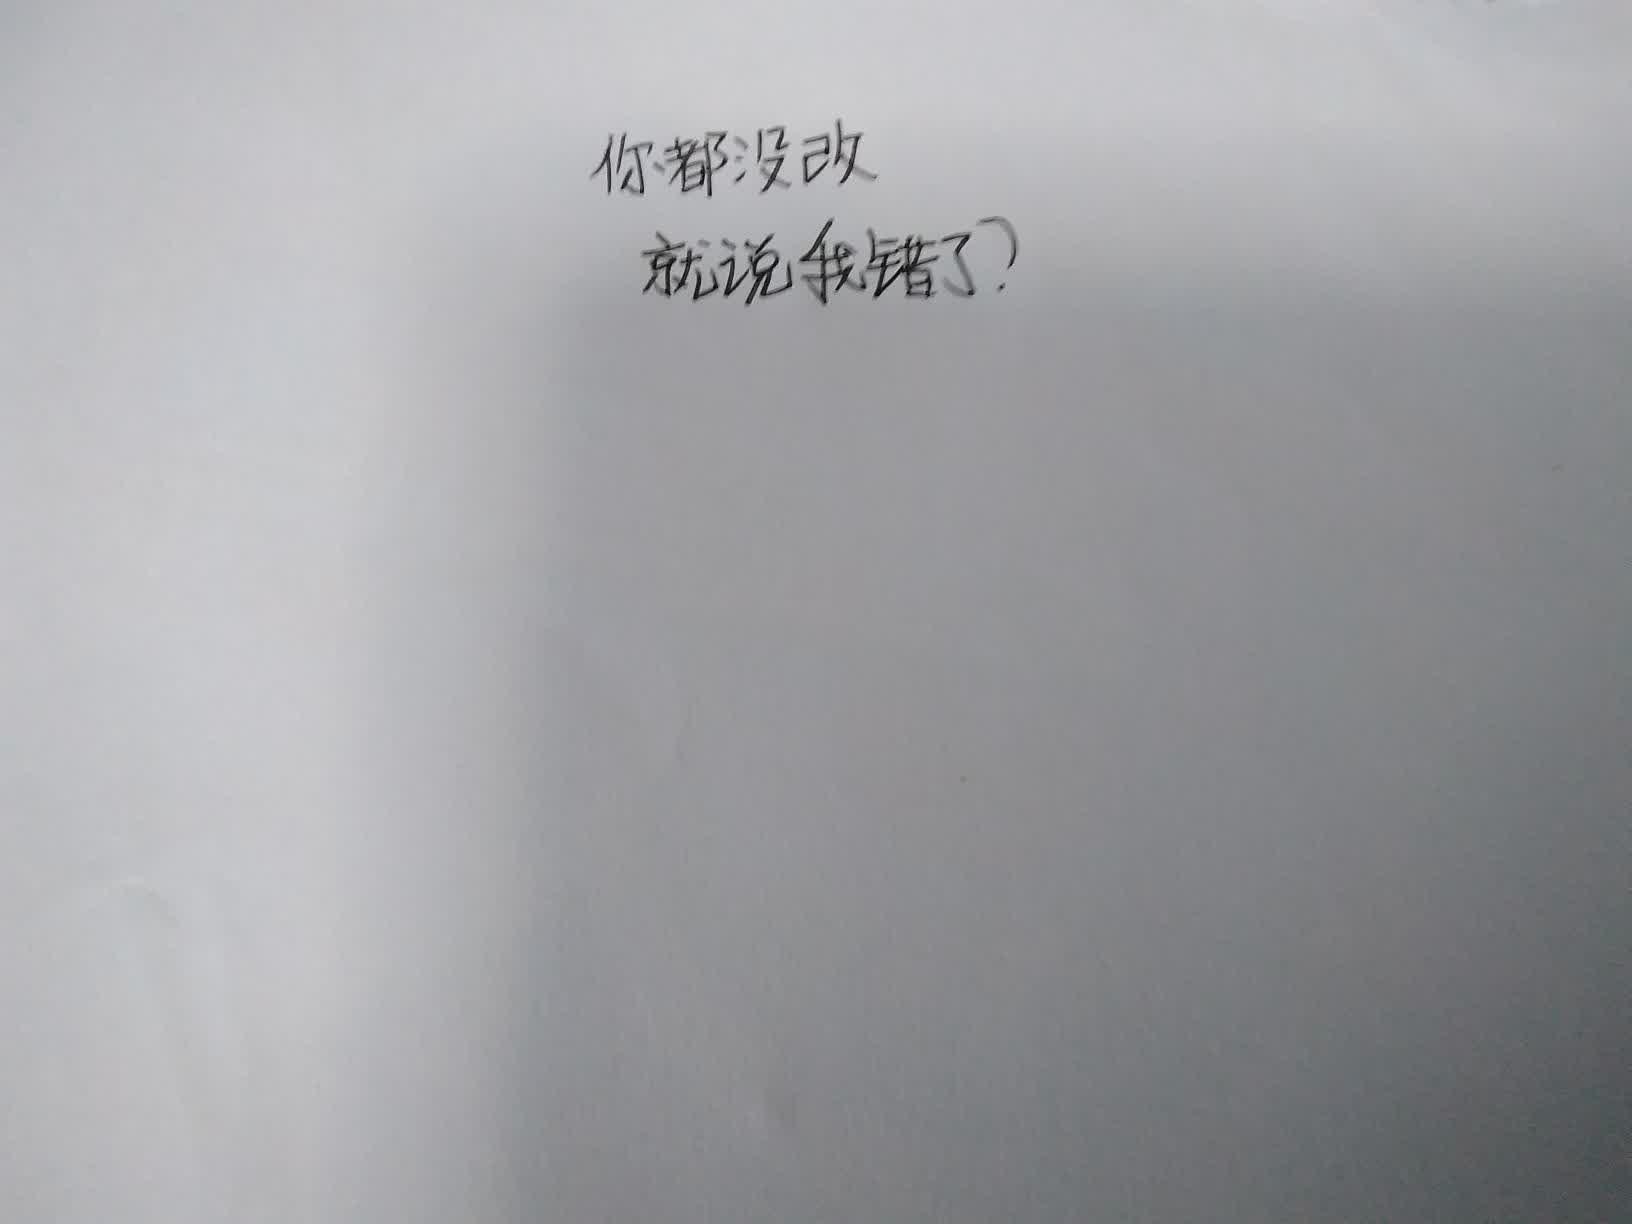 你都没改
就说我错了?